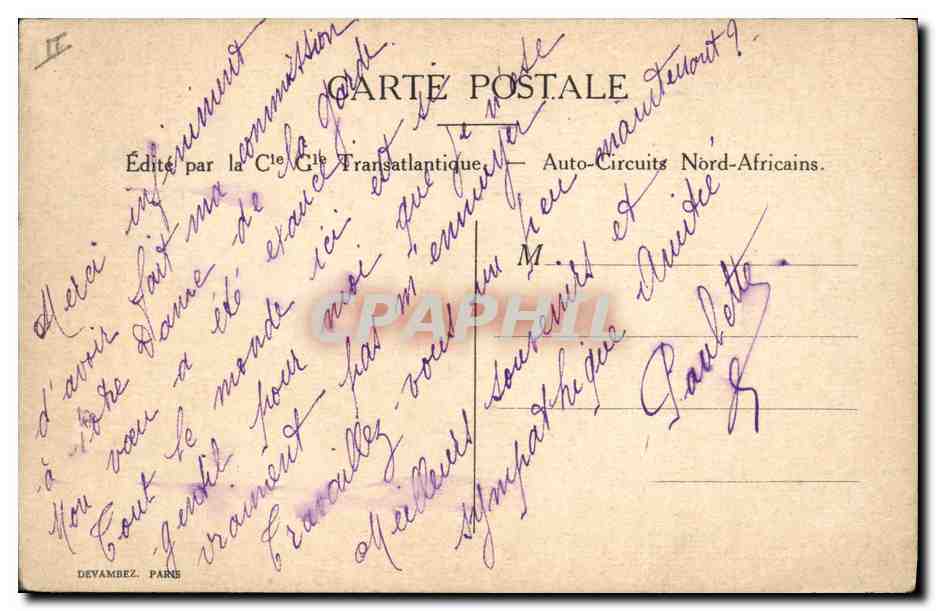 CARTE POSTALE
Édité par la Cie Gle Transatlantique. — Auto-Circuits Nord-Africains.
M
Merci infiniment
d'avoir fait ma commission
à Notre Dame de la Garde.
Mon vœu a été exaucé
Tout le monde ici est si
gentil pour moi que je n'ose
vraiment pas m'ennuyer
Travaillez-vous un peu maintenant ?
Meilleurs souvenirs et
sympathique amitié
Paulette
CPAPHIL
DEVAMBEZ. PARIS